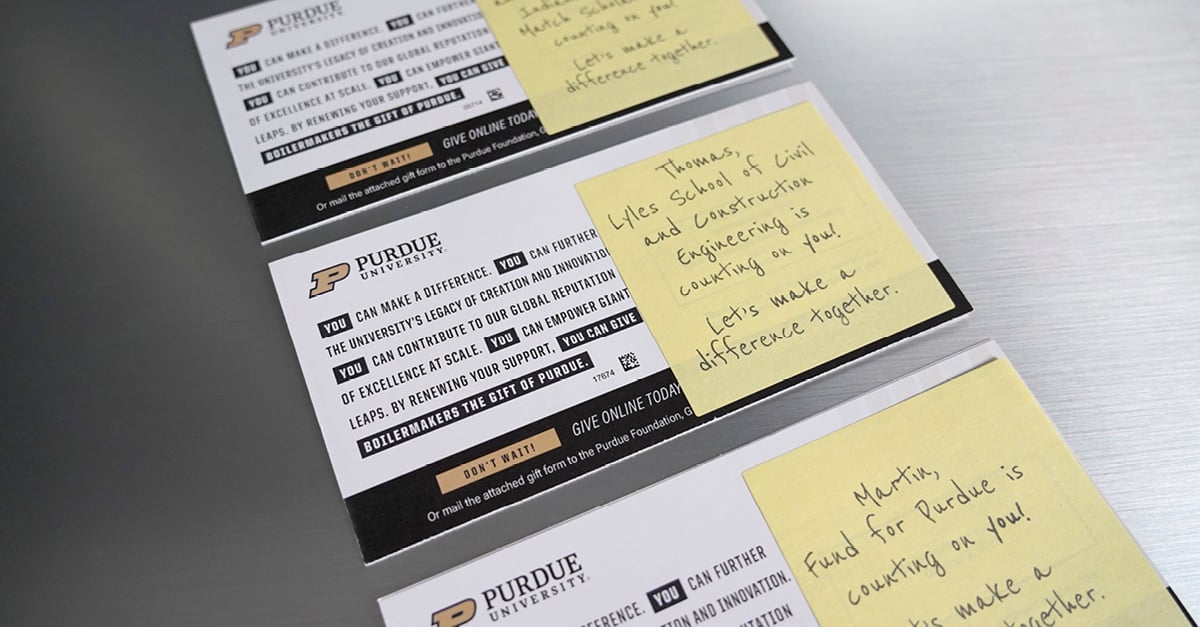 PURDUE
UNIVERSITY
YOU CAN MAKE A DIFFERENCE. YOU CAN FURTHER
THE UNIVERSITY'S LEGACY OF CREATION AND INNOVATION
YOU CAN CONTRIBUTE TO OUR GLOBAL REPUTATION
OF EXCELLENCE AT SCALE. YOU CAN EMPOWER GIANT
LEAPS. BY RENEWING YOUR SUPPORT, YOU CAN GIVE
BOILERMAKERS THE GIFT OF PURDUE.
05714
DON'T WAIT!
GIVE ONLINE TODAY
Or mail the attached gift form to the Purdue Foundation,
Match
counting on you!
Let's make a
difference together.
PURDUE
UNIVERSITY
YOU CAN MAKE A DIFFERENCE. YOU CAN FURTHER
THE UNIVERSITY'S LEGACY OF CREATION AND INNOVATIO
YOU CAN CONTRIBUTE TO OUR GLOBAL REPUTATION
OF EXCELLENCE AT SCALE. YOU CAN EMPOWER GIANT
LEAPS. BY RENEWING YOUR SUPPORT, YOU CAN GIVE
BOILERMAKERS THE GIFT OF PURDUE.
17674
DON'T WAIT!
GIVE ONLINE TODAY
Or mail the attached gift form to the Purdue Foundation, G
Thomas,
Lyles School of Civil
and Construction
Engineering is
counting on you!
Let's make a
difference together.
PURDUE
UNIVERSITY
YOU CAN FURTHER
AND INNOVATION.
Martin,
Fund for Purdue is
counting on you!
make a
together.